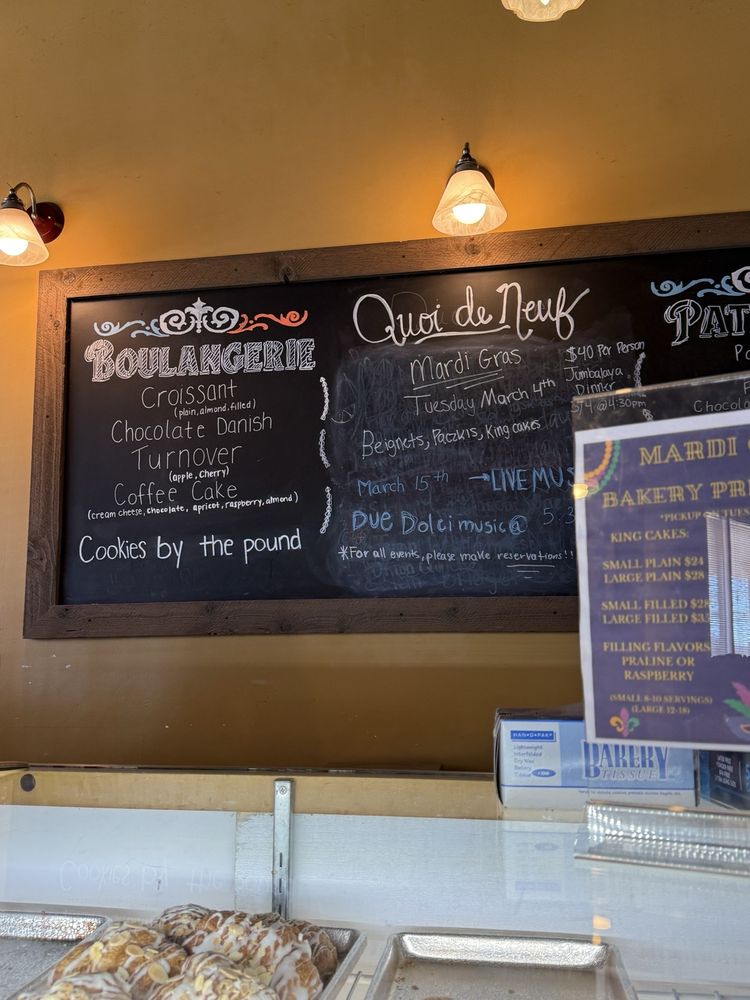 BOULANGERIE
Croissant
(plain, almond, filled)
Chocolate Danish
Turnover
(apple, cherry)
Coffee Cake
(cream cheese, chocolate, apricot, raspberry, almond)
Cookies by the pound
Quoi de Neuf
Mardi Gras
Tuesday March 4th
$40 Per Person
Jumbalaya
Dinner
3/4 @ 4:30pm
Beignets, Paczkis, King cakes
March 15th → LIVE MUS
Due Dolci music @ 5:3
*For all events, please make reservations!!
PAT
Chocola
MARDI
BAKERY PR
*PICKUP
KING CAKES:
SMALL PLAIN $24
LARGE PLAIN $28
SMALL FILLED $28
LARGE FILLED $3
FILLING FLAVORS
PRALINE OR
RASPBERRY
(SMALL 8-10 SERVINGS)
(LARGE 12-18)
HAN-D-PAK
Lightweight
Interfolded
Dry Wax
Bakery
Tissue
BAKERY
TISSUE